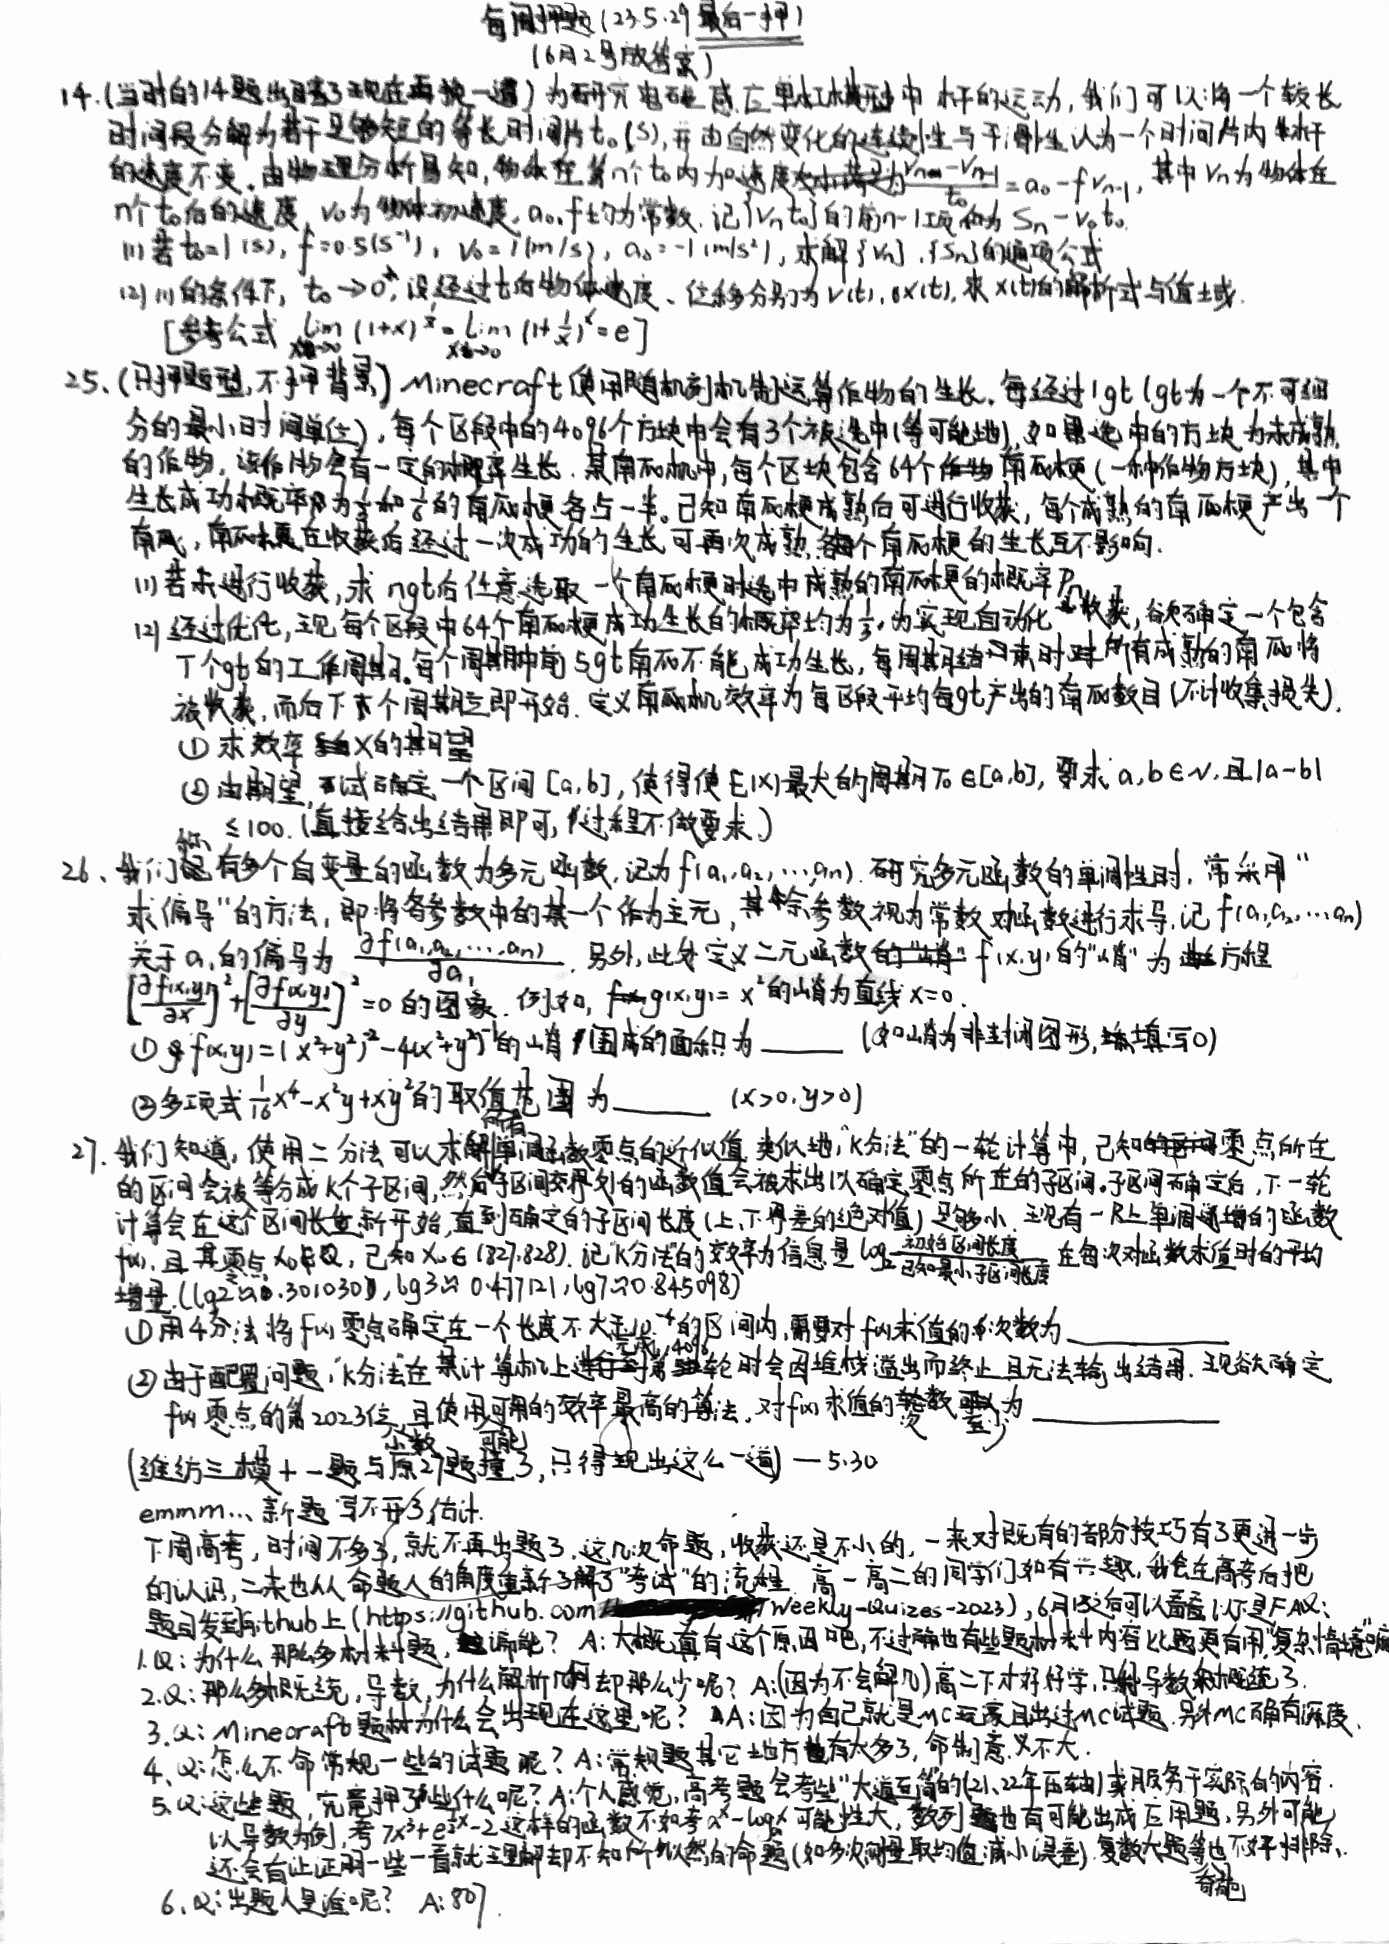 每周押题(23.5.29 最后一押)
(6月2号放答案)
14.(当时的14题出错了现在再换一道) 为研究电磁感应单杠模型中杆的运动,我们可以将一个较长
时间段分解为若干足够短的等长时间片t₀(s),并由自然变化的连续性与平滑性认为一个时间片内杆
的速度不变.由物理分析易知,物体在第n个t₀内 (vₙ-vₙ₋₁)/t₀ = a₀-fvₙ₋₁, 其中vₙ为物体在
n个t₀后的速度, v₀为物体初速度, a₀,f均为常数. 记{vₙt₀}的前n-1项和为Sₙ-v₀t₀.
(1) 若t₀=1(s), f=0.5(s⁻¹), v₀=1(m/s), a₀=-1(m/s²), 求解{vₙ},{Sₙ}的通项公式
(2) (1)的条件下, t₀→0⁺, 设经过t后物体速度、位移分别为v(t),x(t),求x(t)的解析式与值域.
[参考公式 lim(1+x)^(1/x)=lim(1+1/x)^x=e]
25.(只押题型,不押背景) Minecraft使用随机刻机制运算作物的生长. 每经过1gt(gt为一个不可细
分的最小时间单位),每个区段中的4096个方块中会有3个被选中(等可能地),如果选中的方块为未成熟
的作物,该作物会有一定的概率生长. 某南瓜机中,每个区块包含64个作物南瓜梗(一种作物方块),其中
生长成功概率为1/3和1/6的南瓜梗各占一半。已知南瓜梗成熟后可进行收获,每个成熟的南瓜梗产出一个
南瓜,南瓜梗在收获后经过一次成功的生长可再次成熟,每个南瓜梗的生长互不影响.
(1) 若未进行收获,求ngt后任意选取一个南瓜梗时选中成熟的南瓜梗的概率Pₙ
(2) 经过优化,现每个区段中64个南瓜梗成功生长的概率均为1/3.为实现自动化收获,欲确定一个包含
T个gt的工作周期。每个周期中前5gt南瓜不能成功生长,每周期结束时对所有成熟的南瓜将
被收获,而后下个周期立即开始. 定义南瓜机效率为每区段平均每gt产出的南瓜数目(不计收集损失).
① 求效率X的期望
② 由期望,试确定一个区间[a,b],使得使E(X)最大的周期T₀∈[a,b],要求a,b∈N,且|a-b|
≤100.(直接给出结果即可,过程不做要求.)
26、我们称有多个自变量的函数为多元函数,记为f(a₁,a₂,…,aₙ). 研究多元函数的单调性时,常采用"
求偏导"的方法,即将各参数中的某一个作为主元,其余参数视为常数对函数进行求导.记f(a₁,a₂,…aₙ)
关于a₁的偏导为 ∂f(a₁,a₂,…,aₙ)/∂a₁. 另外,此处定义二元函数f(x,y)的"峭"为方程
[∂f(x,y)/∂x]²+[∂f(x,y)/∂y]²=0的图象. 例如, g(x,y)=x²的峭为直线x=0.
① f(x,y)=(x²+y²)⁻²-4(x²+y²)⁻¹的峭围成的面积为____ (如峭为非封闭图形,填写0)
② 多项式1/16x⁴-x²y+xy²的取值范围为____ (x>0,y>0)
27.我们知道,使用二分法可以求解所有单调函数零点的近似值.类似地,"K分法"的一轮计算中,已知零点所在
的区间会被等分成K个子区间,然后子区间交界处的函数值会被求出以确定零点所在的子区间。子区间确定后,下一轮
计算会在这个区间长重新开始,直到确定的子区间长度(上、下界差的绝对值)足够小. 现有一R上单调递增的函数
f(x),且其零点x₀∉Q,已知x₀∈(827,828). 记"K分法"的效率为信息量log₂(初始区间长度/已知最小子区间长度)在每次对函数求值时的平均
增量.(lg2≈0.301030,lg3≈0.477121,lg7≈0.845098)
① 用4分法将f(x)零点确定在一个长度不大于10⁻⁴的区间内,需要对f(x)求值的次数为____
② 由于配置问题,"K分法"在某计算机上完成 轮时会因堆栈溢出而终止且无法输出结果. 现欲确定
f(x)零点的第2023位小数,且使用可能的效率最高的算法,对f(x)求值的次数至少为____
(潍坊三模+一题与原27题撞了,只得现出这么一道) — 5.30
emmm... 新题写不开了,估计.
下周高考,时间不多了,就不再出题了.这几次命题,收获还是不小的,一来对既有的部分技巧有了更进一步
的认识,二来也从命题人的角度重新了解了"考试"的流程. 高一高二的同学们如有兴趣,我会在高考后把
题目发到github上(https://github.com/ /Weekly-Quizes-2023), 6月15之后可以查看 以下是FAQ:
1.Q:为什么那么多材料题, 谜语? A:大概真有这个原因吧,不过确也有些题材料内容比题更有用."复杂情境"
2.Q:那么多概统,导数,为什么解析几何却那么少呢? A:(因为不会解几)高二下才好好学,只剩导数和概统了.
3.Q:Minecraft题材为什么会出现在这里呢? A:因为自己就是MC玩家且出过MC试题.另外MC确有深度.
4.Q:怎么不命常规一些的试题呢? A:常规题其它地方有太多了,命制意义不大.
5.Q:这些题,究竟押了些什么呢? A:个人感觉,高考题会考些"大道至简"的(21、22年压轴)或服务于实际的内容.
以导数为例,考7x³+e^(2x)-2这样的函数不如考aˣ-logₐx可能性大,数列题也有可能出成应用题,另外可能
还会有让证明一些一看就理解却不知所以然的命题(如多次测量取均值减小误差).复数大题等也不好排除.
6.Q:出题人是谁呢? A:807.